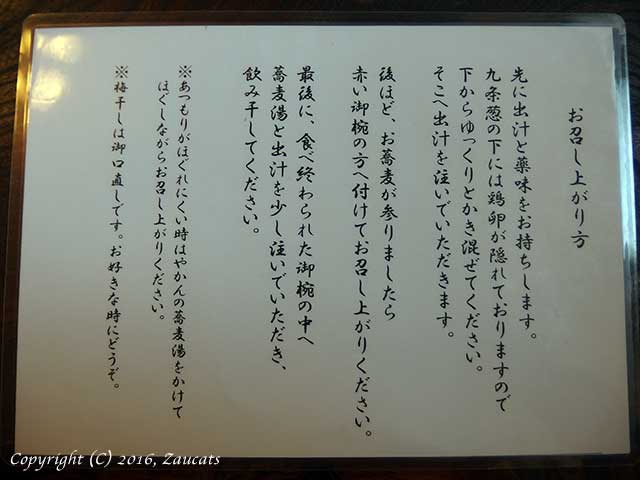 お召し上がり方
先に出汁と薬味をお持ちします。
九条葱の下には鶏卵が隠れておりますので
下からゆっくりとかき混ぜてください。
そこへ出汁を注いでいただきます。
後ほど、お蕎麦が参りましたら
赤い御椀の方へ付けてお召し上がりください。
最後に、食べ終わられた御椀の中へ
蕎麦湯と出汁を少し注いでいただき、
飲み干してください。
※あつもりがほぐれにくい時はやかんの蕎麦湯をかけて
ほぐしながらお召し上がりください。
※梅干しは御口直しです。お好きな時にどうぞ。
Copyright (C) 2016, Zaucats